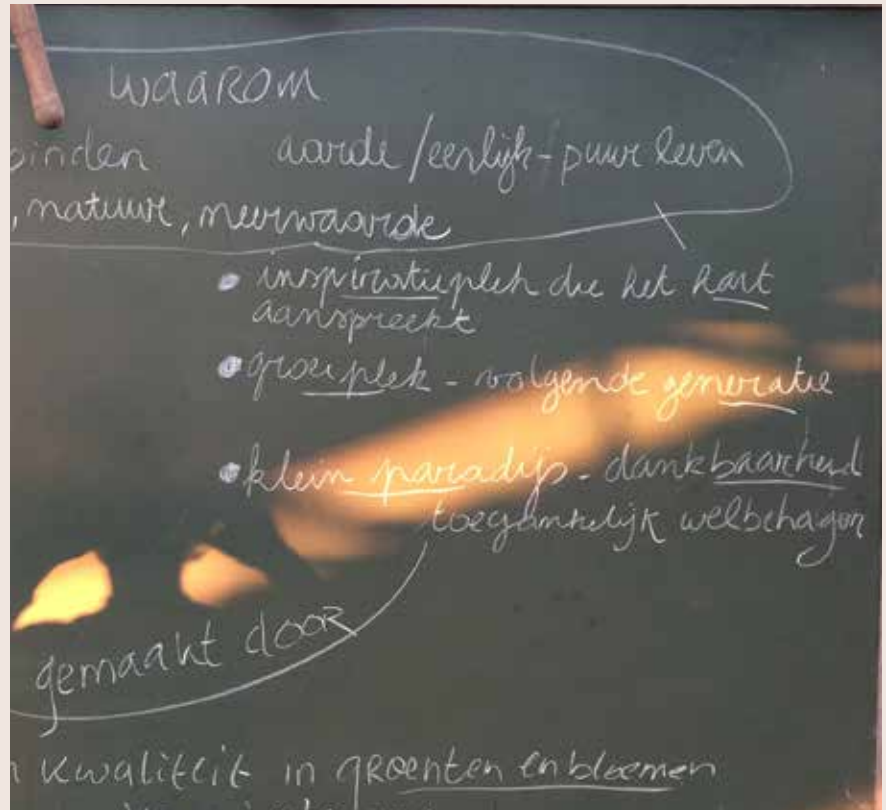 waarom
binden aarde / eerlijk - puur leven
, natuur, meerwaarde
• inspiratieplek die het hart
aanspreekt
• groeiplek - volgende generatie
• klein paradijs - dankbaarheid
toegankelijk welbehagen
gemaakt door
n kwaliteit in groenten en bloemen